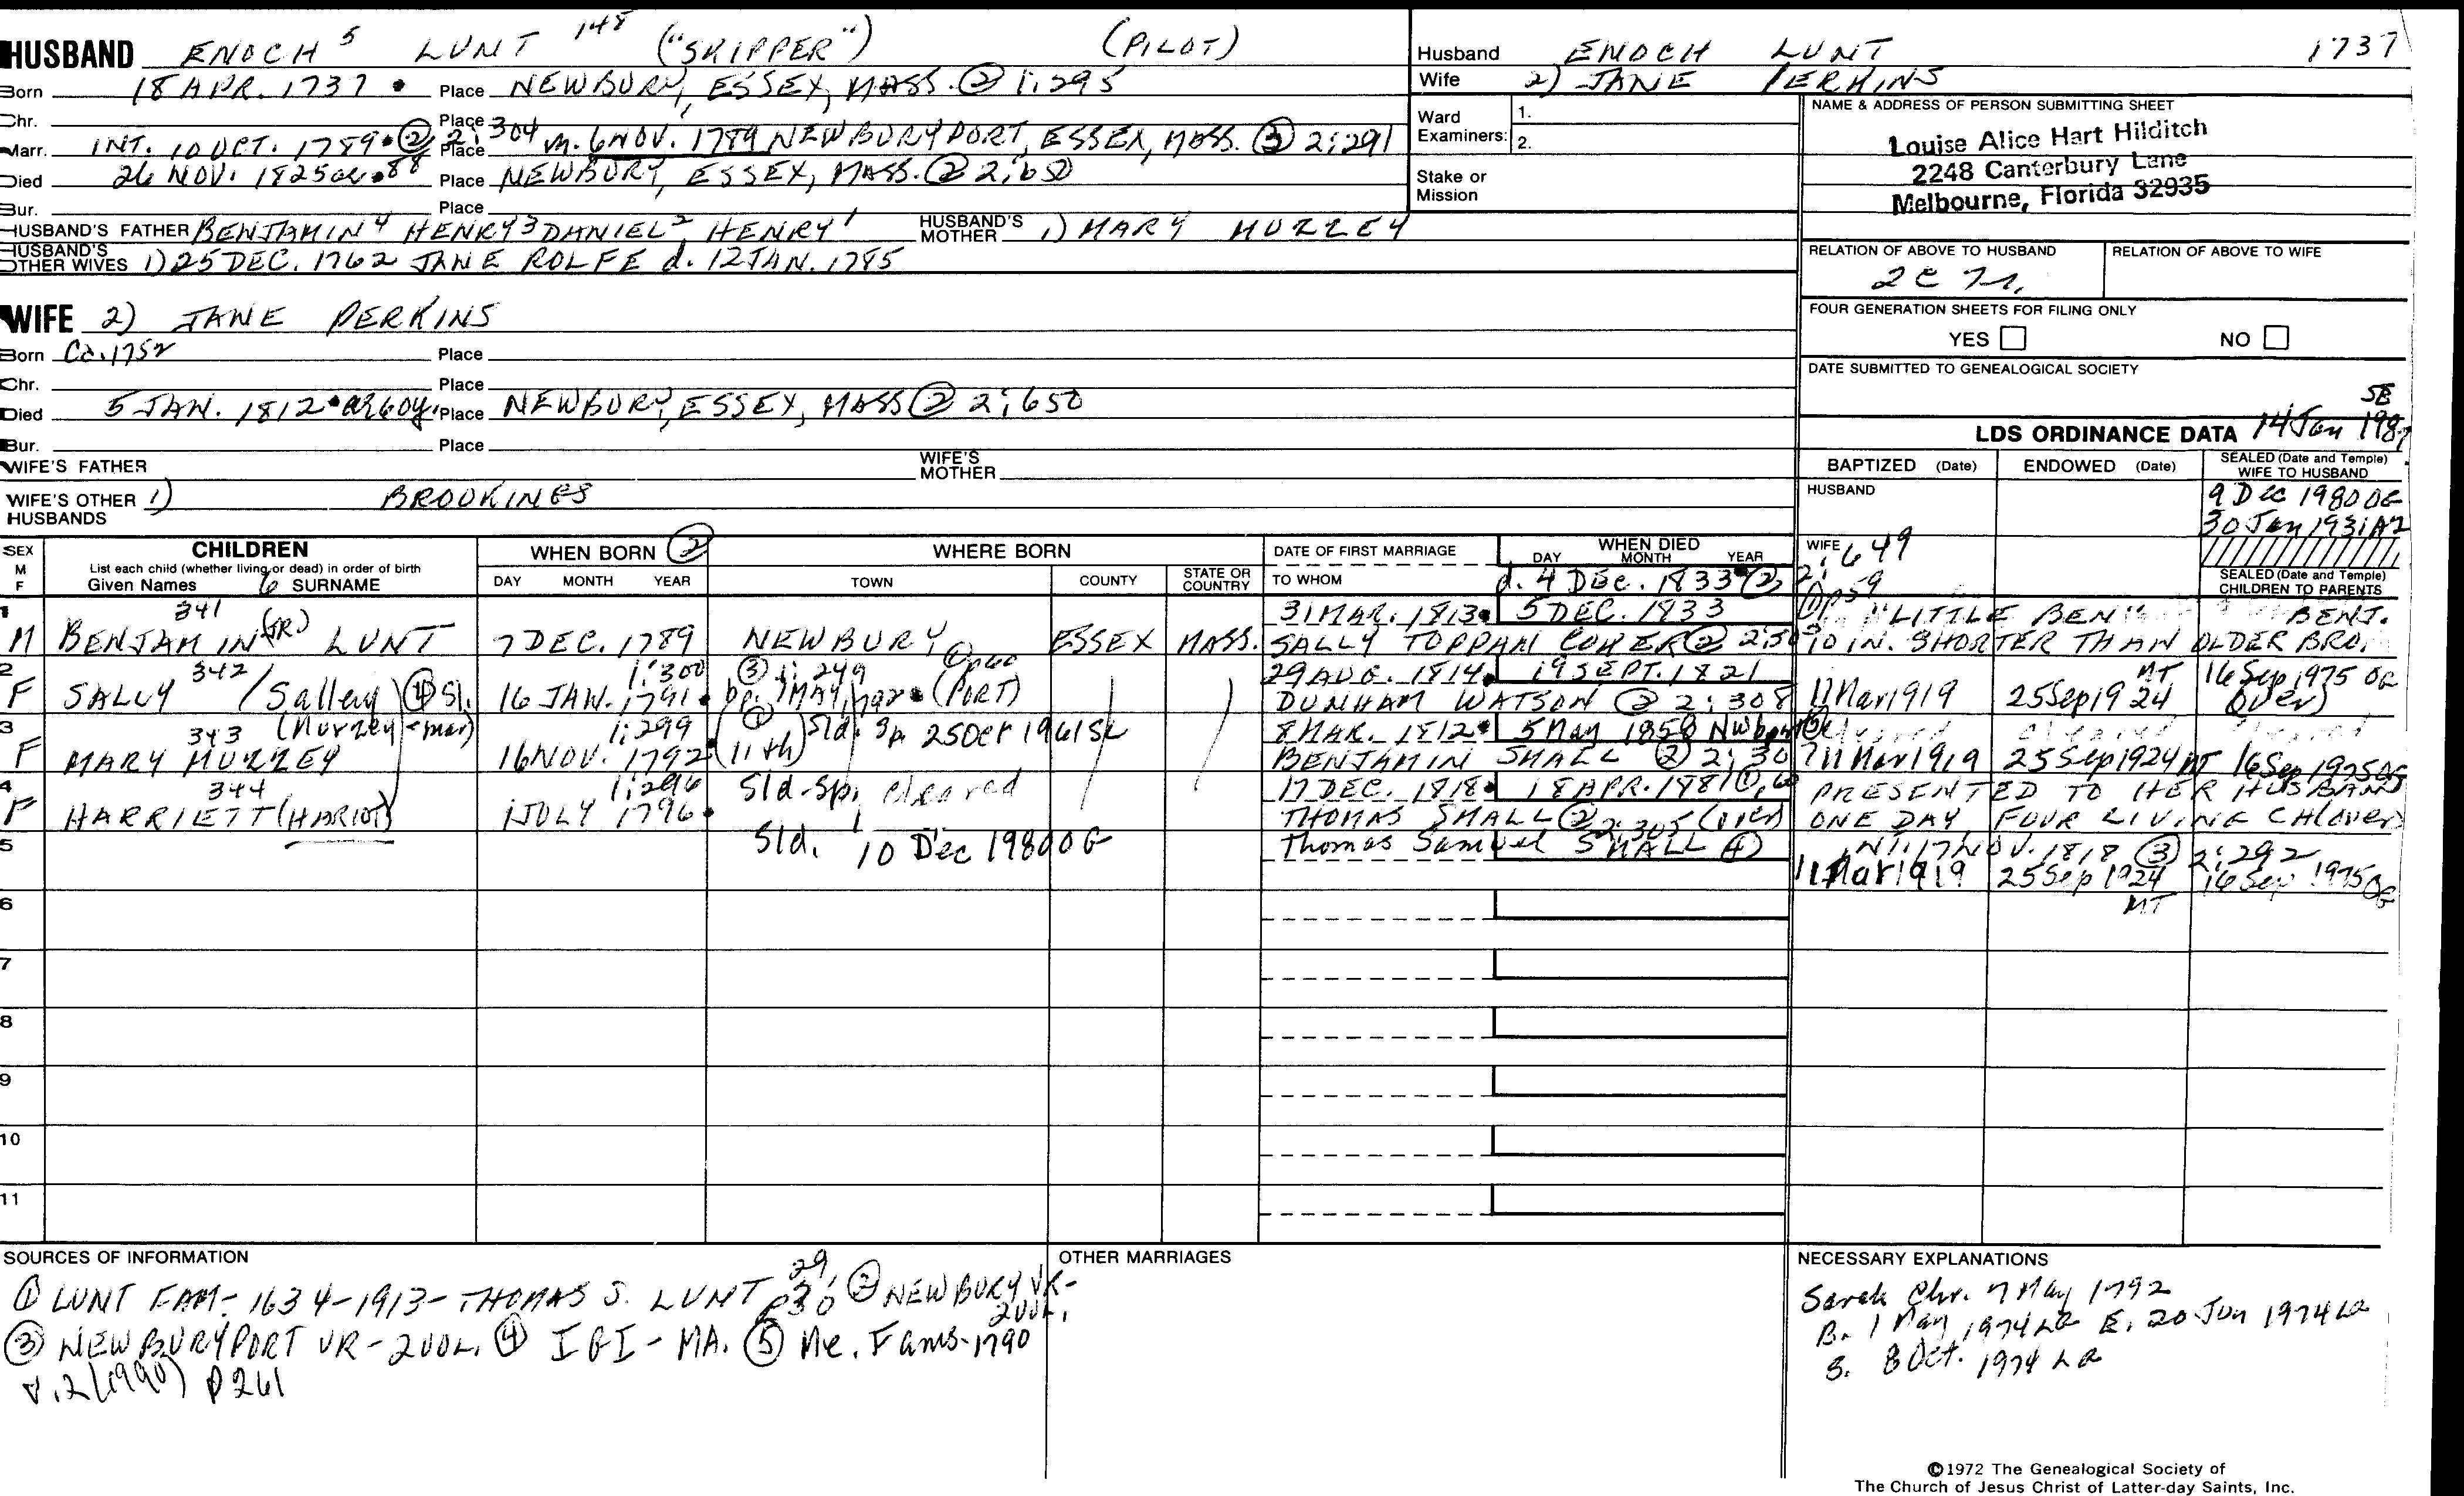 HUSBAND ENOCH 5 LUNT 148 ("SKIPPER") (PILOT)
Born 18 APR. 1737 Place NEWBURY, ESSEX, MASS. ② 1:295
Chr. Place
Marr. INT. 10 OCT. 1789 ② 2:304 Place m. 6 NOV. 1789 NEWBURYPORT, ESSEX, MASS. ③ 2:291
Died 26 NOV. 1825 ae. 88 Place NEWBURY, ESSEX, MASS. ② 2:650
Bur. Place
HUSBAND'S FATHER BENJAMIN 4 HENRY 3 DANIEL 2 HENRY 1 HUSBAND'S MOTHER 1) MARY HUZZEY
HUSBAND'S OTHER WIVES 1) 25 DEC. 1762 JANE ROLFE d. 12 JAN. 1785
WIFE 2) JANE PERKINS
Born Ca. 1752 Place
Chr. Place
Died 5 JAN. 1812 ae 60y. Place NEWBURY, ESSEX, MASS ② 2:650
Bur. Place
WIFE'S FATHER WIFE'S MOTHER
WIFE'S OTHER HUSBANDS 1) BROOKINES
Husband ENOCH LUNT 1737
Wife 2) JANE PERKINS
Ward Examiners: 1.
2.
Stake or Mission
NAME & ADDRESS OF PERSON SUBMITTING SHEET
Louise Alice Hart Hilditch
2248 Canterbury Lane
Melbourne, Florida 32935
RELATION OF ABOVE TO HUSBAND RELATION OF ABOVE TO WIFE
FOUR GENERATION SHEETS FOR FILING ONLY
YES NO
DATE SUBMITTED TO GENEALOGICAL SOCIETY
SE
LDS ORDINANCE DATA 14 Jan 1987
BAPTIZED (Date) ENDOWED (Date) SEALED (Date and Temple) WIFE TO HUSBAND
HUSBAND 9 Dec 1980 OG
30 Jan 1931 AZ
WIFE
SEALED (Date and Temple) CHILDREN TO PARENTS
SEX M F CHILDREN
List each child (whether living or dead) in order of birth
Given Names SURNAME
WHEN BORN ② DAY MONTH YEAR
WHERE BORN TOWN COUNTY STATE OR COUNTRY
DATE OF FIRST MARRIAGE TO WHOM
WHEN DIED DAY MONTH YEAR
d. 4 Dec. 1833 ② 2:649
1 341 31 MAR. 1813 5 DEC. 1833 ① p59 "LITTLE BEN" BENJ.
M BENJAMIN (JR.) LUNT 7 DEC. 1789 NEWBURY ESSEX MASS. SALLY TOPPAN COKER ② 10 IN. SHORTER THAN OLDER BRO.
2 342 1:300 ③ 1:249 29 AUG. 1814 19 SEPT. 1821
F SALLY (Sallery) ④ Sl. 16 JAN. 1791 bp. 7 MAY 1792 (PORT) DUNHAM WATSON ② 2:308 11 Mar 1919 25 Sep 1924 MT 16 Sep 1975 OG (over)
3 343 (Hurzey - mar) 1:299 Sld. Sp. 25 Oct 1961 SL 8 MAR. 1812 5 May 1858 Nwbport
F MARY HUZZEY 16 NOV. 1792 (11th) BENJAMIN SMALL ② 2:30 11 Mar 1919 25 Sep 1924 MT 16 Sep 1975 OG
4 344 1:296 Sld-Sp. cleared 17 DEC. 1818 18 APR. 1881 PRESENTED TO HER HUSBAND
F HARRIETT (HARIOT) 1 JULY 1796 THOMAS SMALL ② 2:305 (over) ONE DAY FOUR LIVING CH (over)
5 Sld. 10 Dec 1980 OG Thomas Samuel SMALL ④ INT. 17 NOV. 1818 ③ 2:292
11 Mar 1919 25 Sep 1924 MT 16 Sep 1975 OG
6
7
8
9
10
11
SOURCES OF INFORMATION
① LUNT FAM- 1634-1913- THOMAS S. LUNT 29, p30 ② NEWBURY VR- 2 VOL.
③ NEWBURYPORT VR - 2 VOL. ④ IGI - MA. ⑤ Me. Fams-1790
v.2 (1990) p261
OTHER MARRIAGES
NECESSARY EXPLANATIONS
Sarah Chr. 7 May 1792
B. 1 May 1974 LA E. 20 Jun 1974 LA
S. 8 Oct. 1974 LA
©1972 The Genealogical Society of
The Church of Jesus Christ of Latter-day Saints, Inc.